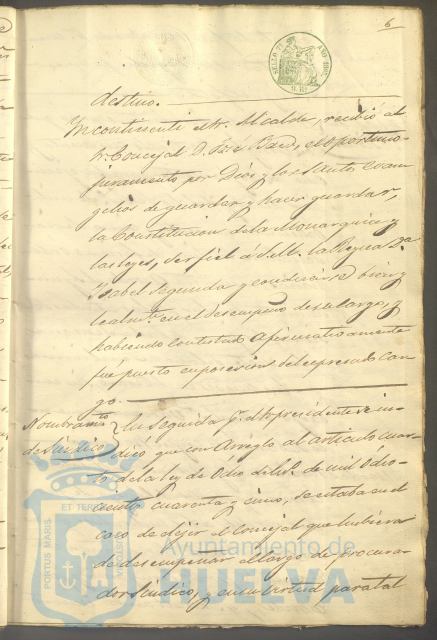 6
SELLO 7º AÑO 1867
destino.
Incontinenti el Sr. Alcalde, recibió al
Sr. Concejal D. José Baez, el oportuno
juramento por Dios y los Santos Evan
gelios de guardar y hacer guardar,
la Constitucion de la Monarquia y
las leyes, ser fiel á S. M. la Reyna Dª
Isabel Segunda y conducirse bien y
lealmte. en el desempeño de su cargo, y
habiendo contestado afirmativamente
fue puesto en posesion del espresado car
go.
Nombramto
de Sindico
En Seguida pr. el Sr. presidente se in
dicó que con arreglo al articulo cuar
to de la ley de Ocho de de mil Ocho
cientos cuarenta y cinco, se estaba en el
caso de elejir el Concejal que hubiera
de desempeñar el cargo de procura
dor Sindico, y en su virtud para tal
PORTUS MARIS
ET TERRAE
CUSTODIA
Ayuntamiento de
HUELVA